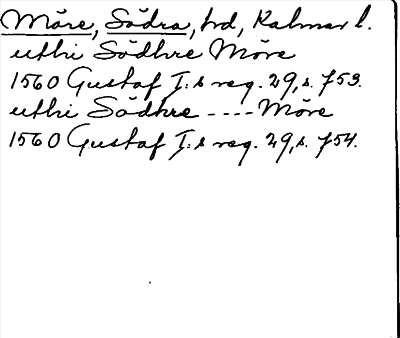 Möre, Södra, hd, Kalmar l.
uthi Södhre Möre
1560 Gustaf I:s reg. 29, s. 753.
uthi Södhre ---- Möre
1560 Gustaf I:s reg. 29, s. 754.